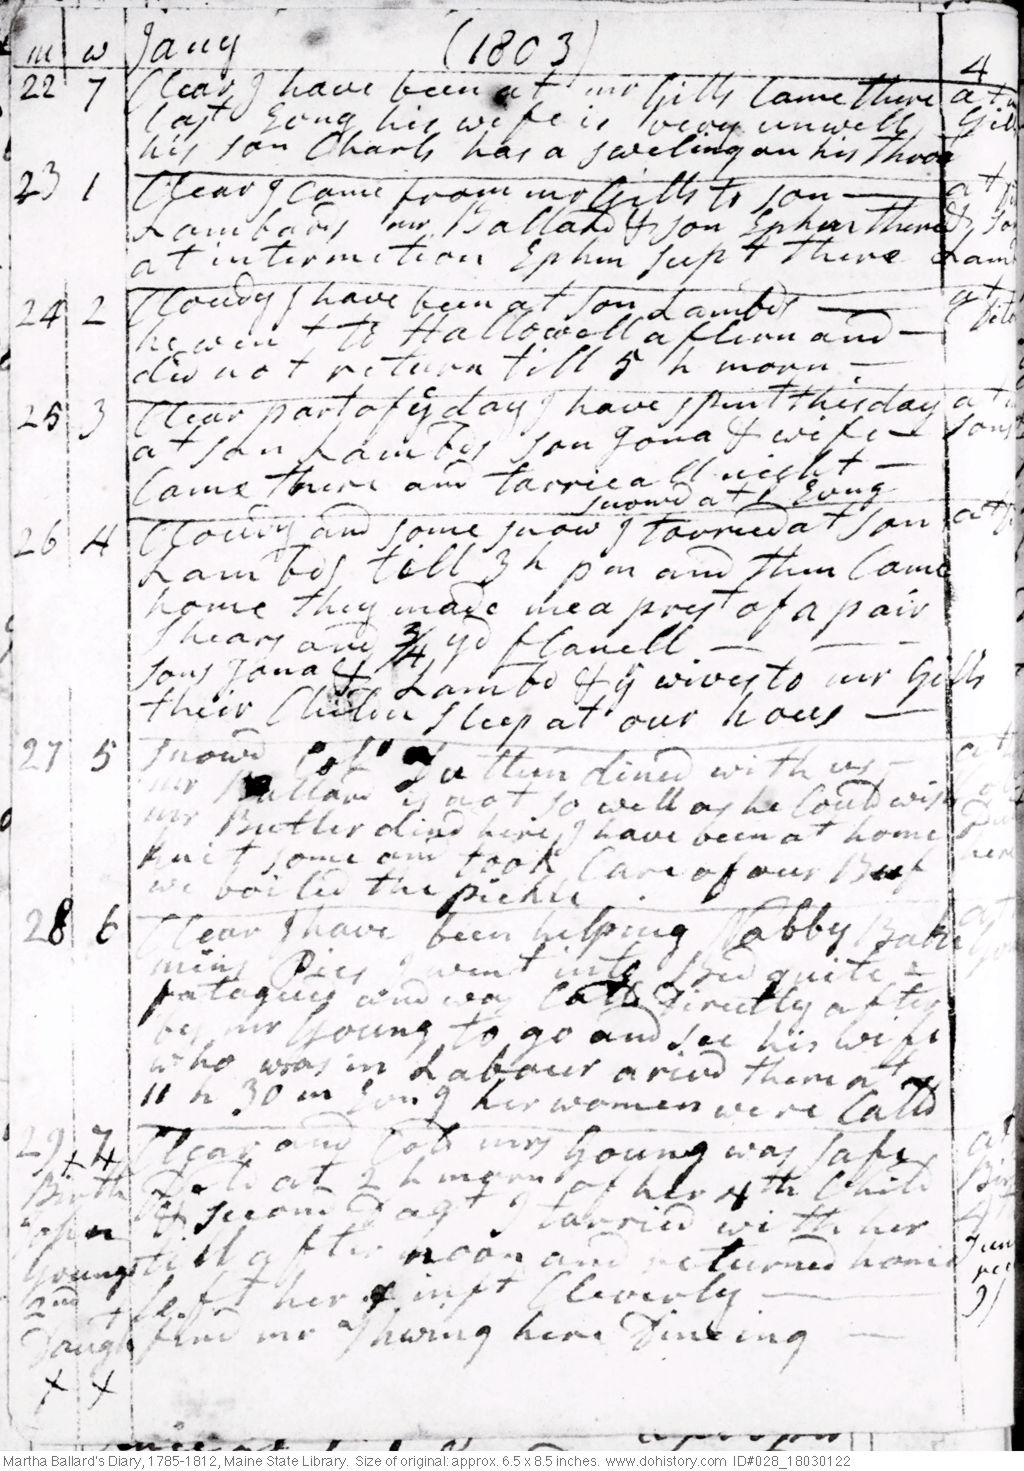 m w Jany (1803) 4
22 7 Clear. I have been at mr Gills Came there
last Evng his wife is very unwell
his son Charls has a sweling on his Throa
23 1 Clear I came from mr Gills to son
Lambards mr Ballard & son Ephm there & son
at intermition Ephm Sept there Lam
24 2 Cloudy I have been at son Lambds
he went to Hallowell aftern and
did not return till 5 h morn
25 3 Clear part of ye day I have spent this day
at son Lambds son Jona & wife sons
Came there and tarried all night
snowd at Evng
26 4 Cloudy and some snow I tarried at son
Lambds till 3 h pm and then Came
home they made me a prest of a pair
Shears and 3/4 yd flanell
sons Jona & Lambd & ye wives to mr Gills
their Childn sleep at our hous
27 5 snowd dined with us
mr Ballard is not so well as he Could wish
mr Butler dind here I have been at home
knit some and took Care of our Beef here
we boiled the pickle
28 6 Clear I have been helping Nabby Bake
mins Pies I went into Bed quite
fatagued and was Calld Directly after
by mr Young to go and see his wife
who was in Labour arivd there at
11 h 30 m Evng her women were Calld
29 7 Clear and Cold mrs Young was safe
Birth Deld at 2 h morn of her 4th Child
& second dagt I tarried with her
Youngs till after noon and returned home
2nd left her & inft Cleverly
Daught find mr Thwing here Dineing
x x
Martha Ballard's Diary, 1785-1812, Maine State Library. Size of original: approx. 6.5 x 8.5 inches. www.dohistory.com ID#028_18030122